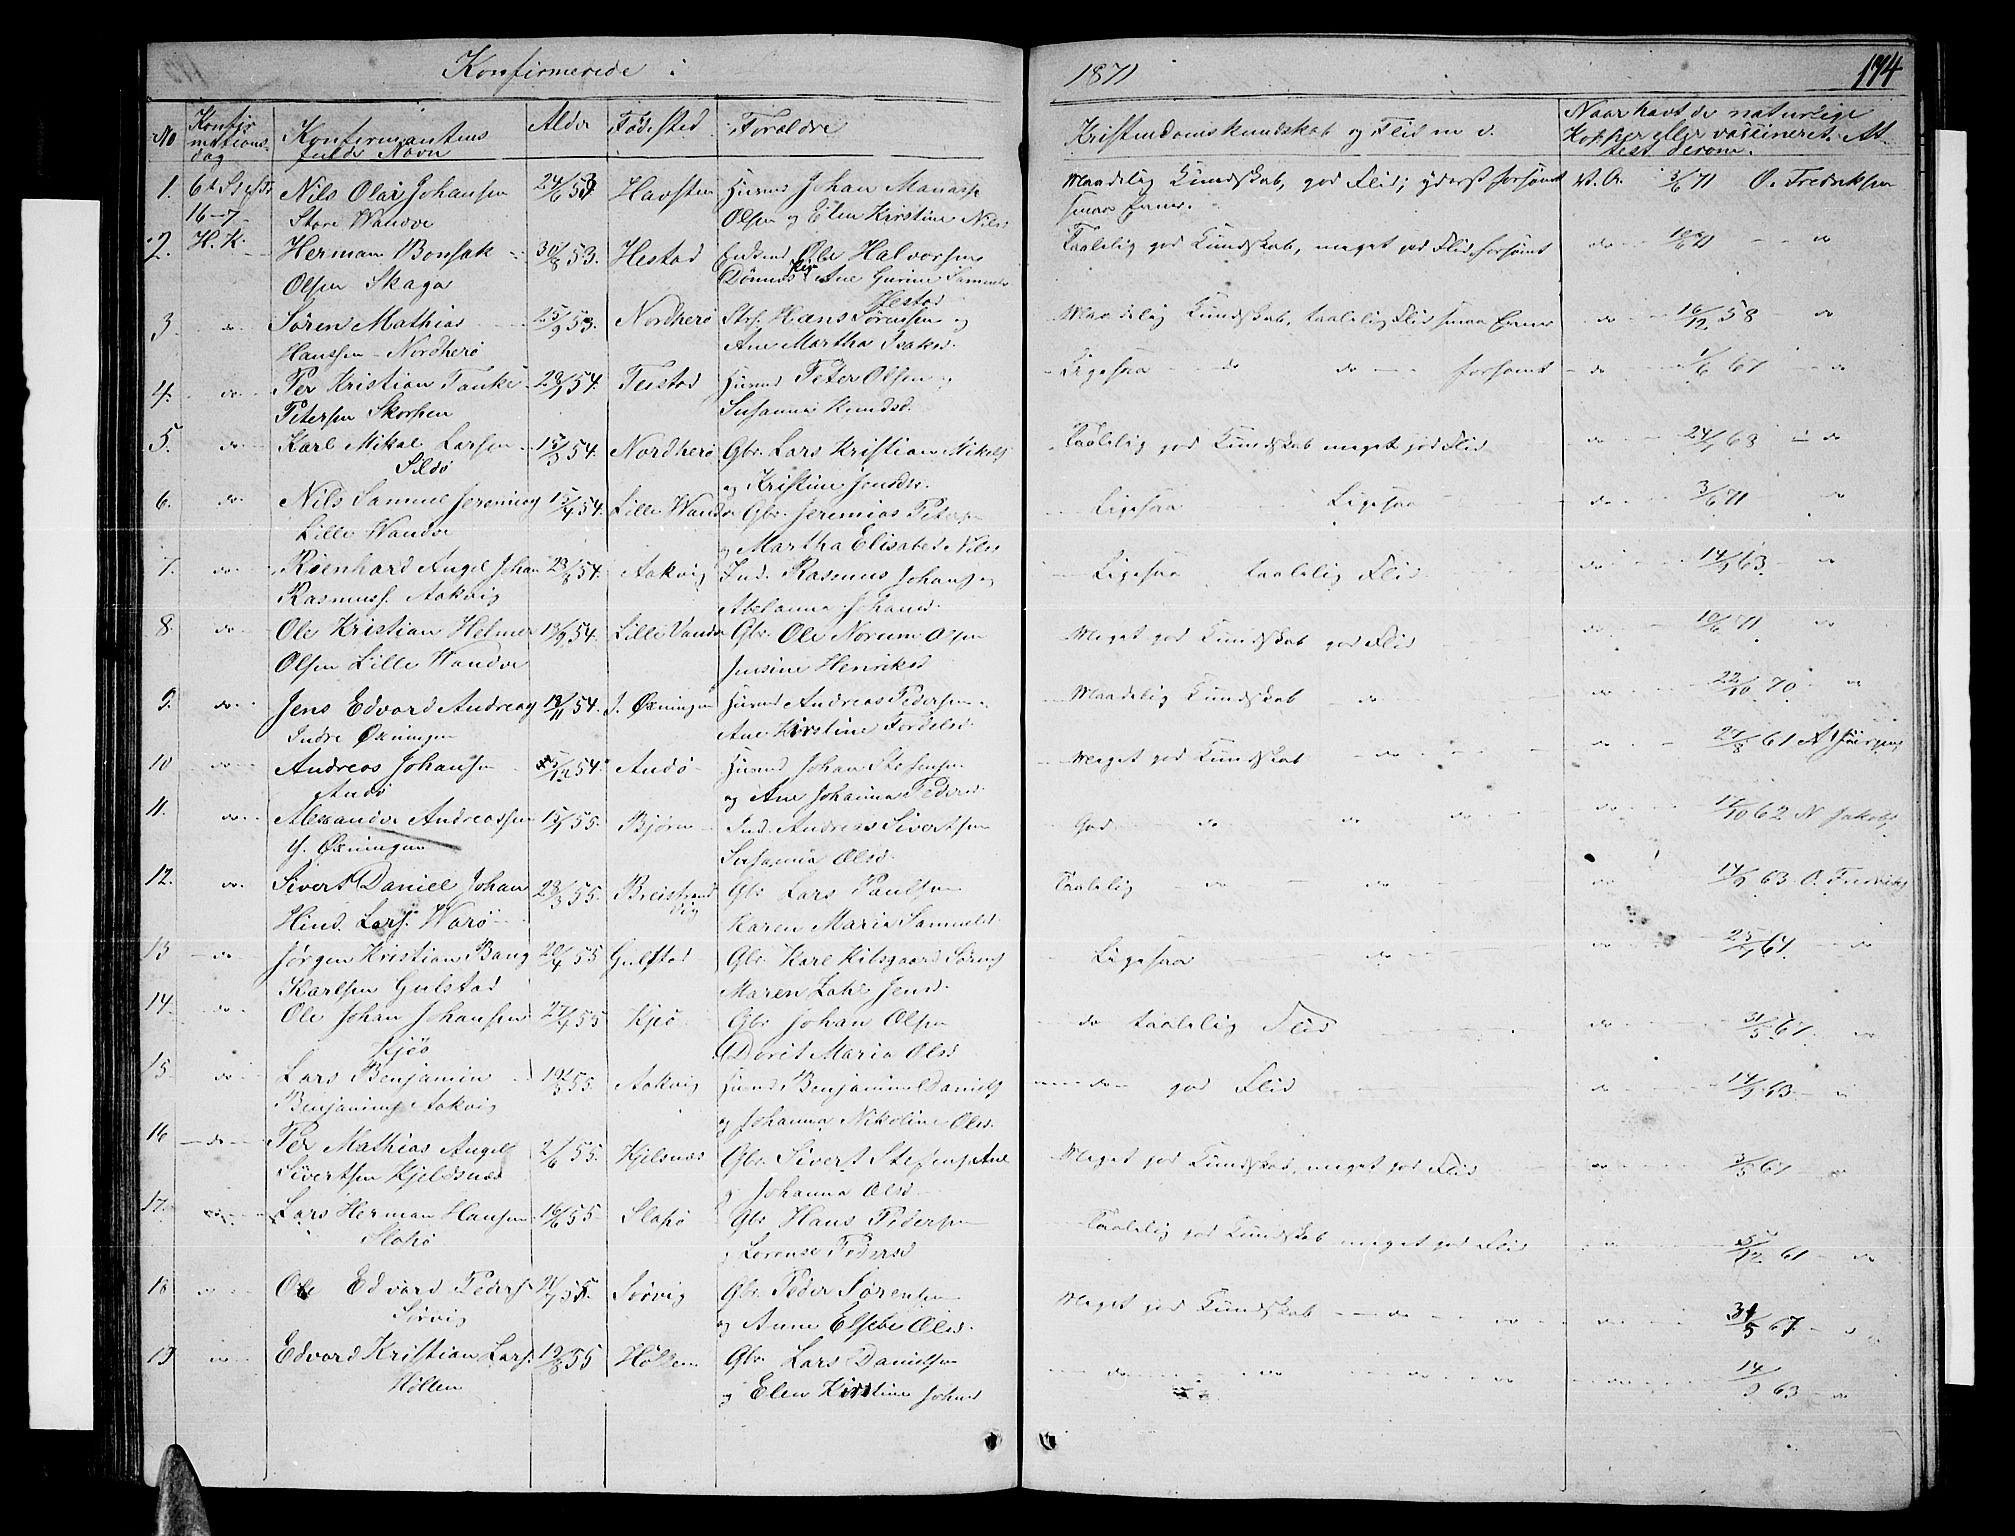 Konfirmerede i 1871 174
No Konfirmationsdag Konfirmantens fulde Navn Alder Fødested Forældre Kristendomskundskab og Flid m. v. Naar havt de naturlige Kopper eller vaccineret. Attest derom.
1. 16-7 Nils Olai Johansen 24/6 53 Havsten Johan Manasse Maadelig Kundskab, god Flid; yderst forsømt V.A. 3/6 71 O. Fredriksen
Store Wandve Olsen og Elen Kirstine Nilsd smaa Evner.
2. H. K. Herman Bonsak 30/8 53. Hestad Ole Halvorsen Taalelig god Kundskab, meget god Flid, forsømt do 71 do
Olsen Skaga Dønnes Ane Gurine Samuelsd
Hestad
3 do Søren Mathias 25/9 53. Nordherø Str. Hans Sørensen og Maadelig Kundskab, taalelig Flid smaa Evner do 16/12 58 do
Hanssen Nordherø Ane Martha Isaksd.
4. do Per Kristian Tanke 29/1 54. Teistad Husmd Peter Olsen og Ligesaa do do forsømt do 1/6 67 do
Petersen Skorpen Susanna Knudsd.
5. do Karl Mikal Larsen 15/3 54. Nordherø Gbr. Lars Kristian Mikels Taalelig god Kundskab meget god Flid do 24/1 68 do
Sildø og Kristine Jensdr.
6. do Nils Samuel Jeremias 15/4 54. Lille Wandve Gbr. Jeremias Peters Ligesaa Ligesaa do 3/6 71 do
Lille Wandve og Martha Elisabet Nilsd
7. do Reenhard Angel Johan 23/8 54. Aakvig Ind. Rasmus Johans og Ligesaa taalelig Flid do 14/9 63. do
Rasmuss. Aakvig Abelanna Johansd.
8. do Ole Kristian Helmer 13/9 54. Lille Vandve Gbr. Ole Norum Olsen Meget god Kundskab god Flid do 10/6 71 do
Olsen Lille Wandve Jensine Henriksd
9. do Jens Edvard Andreas 12/11 54. J. Øxningen Husmd Andreas Pedersen Maadelig Kundskab do do 22/10 70. do
Indre Øxningen Ane Kirstine Fordelsd.
10 do Andreas Johansen 5/12 54. Andø Husmd Johan Stefensen Meget god Kundskab do do 27/8 61 A. Jørgens
Andø og Ane Johanna Pedersd.
11. do Alexander Andreassen 15/1 55. Bjørn Ind. Andreas Sivertsen God do do do do 17/10 62 N. Jakobs
J. Øxningen Susanna Olsd.
12. do. Sivert Daniel Johan 23/3 55. Breistrandvig Gbr Lars Paulsen Taalelig do do do 14/9 63 O. Fredriks
Hind. Lars. Warø Karen Maria Samuelsd.
13 do Jørgen Kristian Bang 20/4 55 Gulstad Gbr. Karl Kilsgaard Sørens Ligesaa do do 25/1 61. do
Karlsen Gulstad Maren Jensd.
14. do Ole Johan Johansen 27/4 55 Kjeø Gbr Johan Olsen do taalelig Flid do 31/5 67. do
Kjeø Dorit Maria Olsd
15. do Lars Benjamin 14/5 55. Aakvig Husmd Benjamin Daniels do god Flid do 14/9 63.
Benjamins Aakvig og Johanna Nikoline Olsd.
16 do Per Mathias Angel 2/6 55. Kjelsnæs Gbr. Sivert Stefens Ane Meget god Kundskab, meget god Flid do 3/5 61 do
Sivertsen Kjeldsnæs Johanna Olsd
17. do Lars Herman Hansen 16/6 55 Slapø Gbr Hans Pedersen Taalelig god Kundskab meget god Flid do 5/12 61 do
Slapø og Lorense Pedersd
18 do Ole Edvard Peders 21/7 55. Sørvig Gbr. Peder Sørensen Meget god Kundskab do do do 31/5 67.
Sørvig og Anne Elsebe Olsd.
19 do Edvard Kristian Lars. 19/8 55 Hølten Gbr. Lars Danielsen do do do do 14/9 63 do
Hølten og Elen Kirstine Johnsd